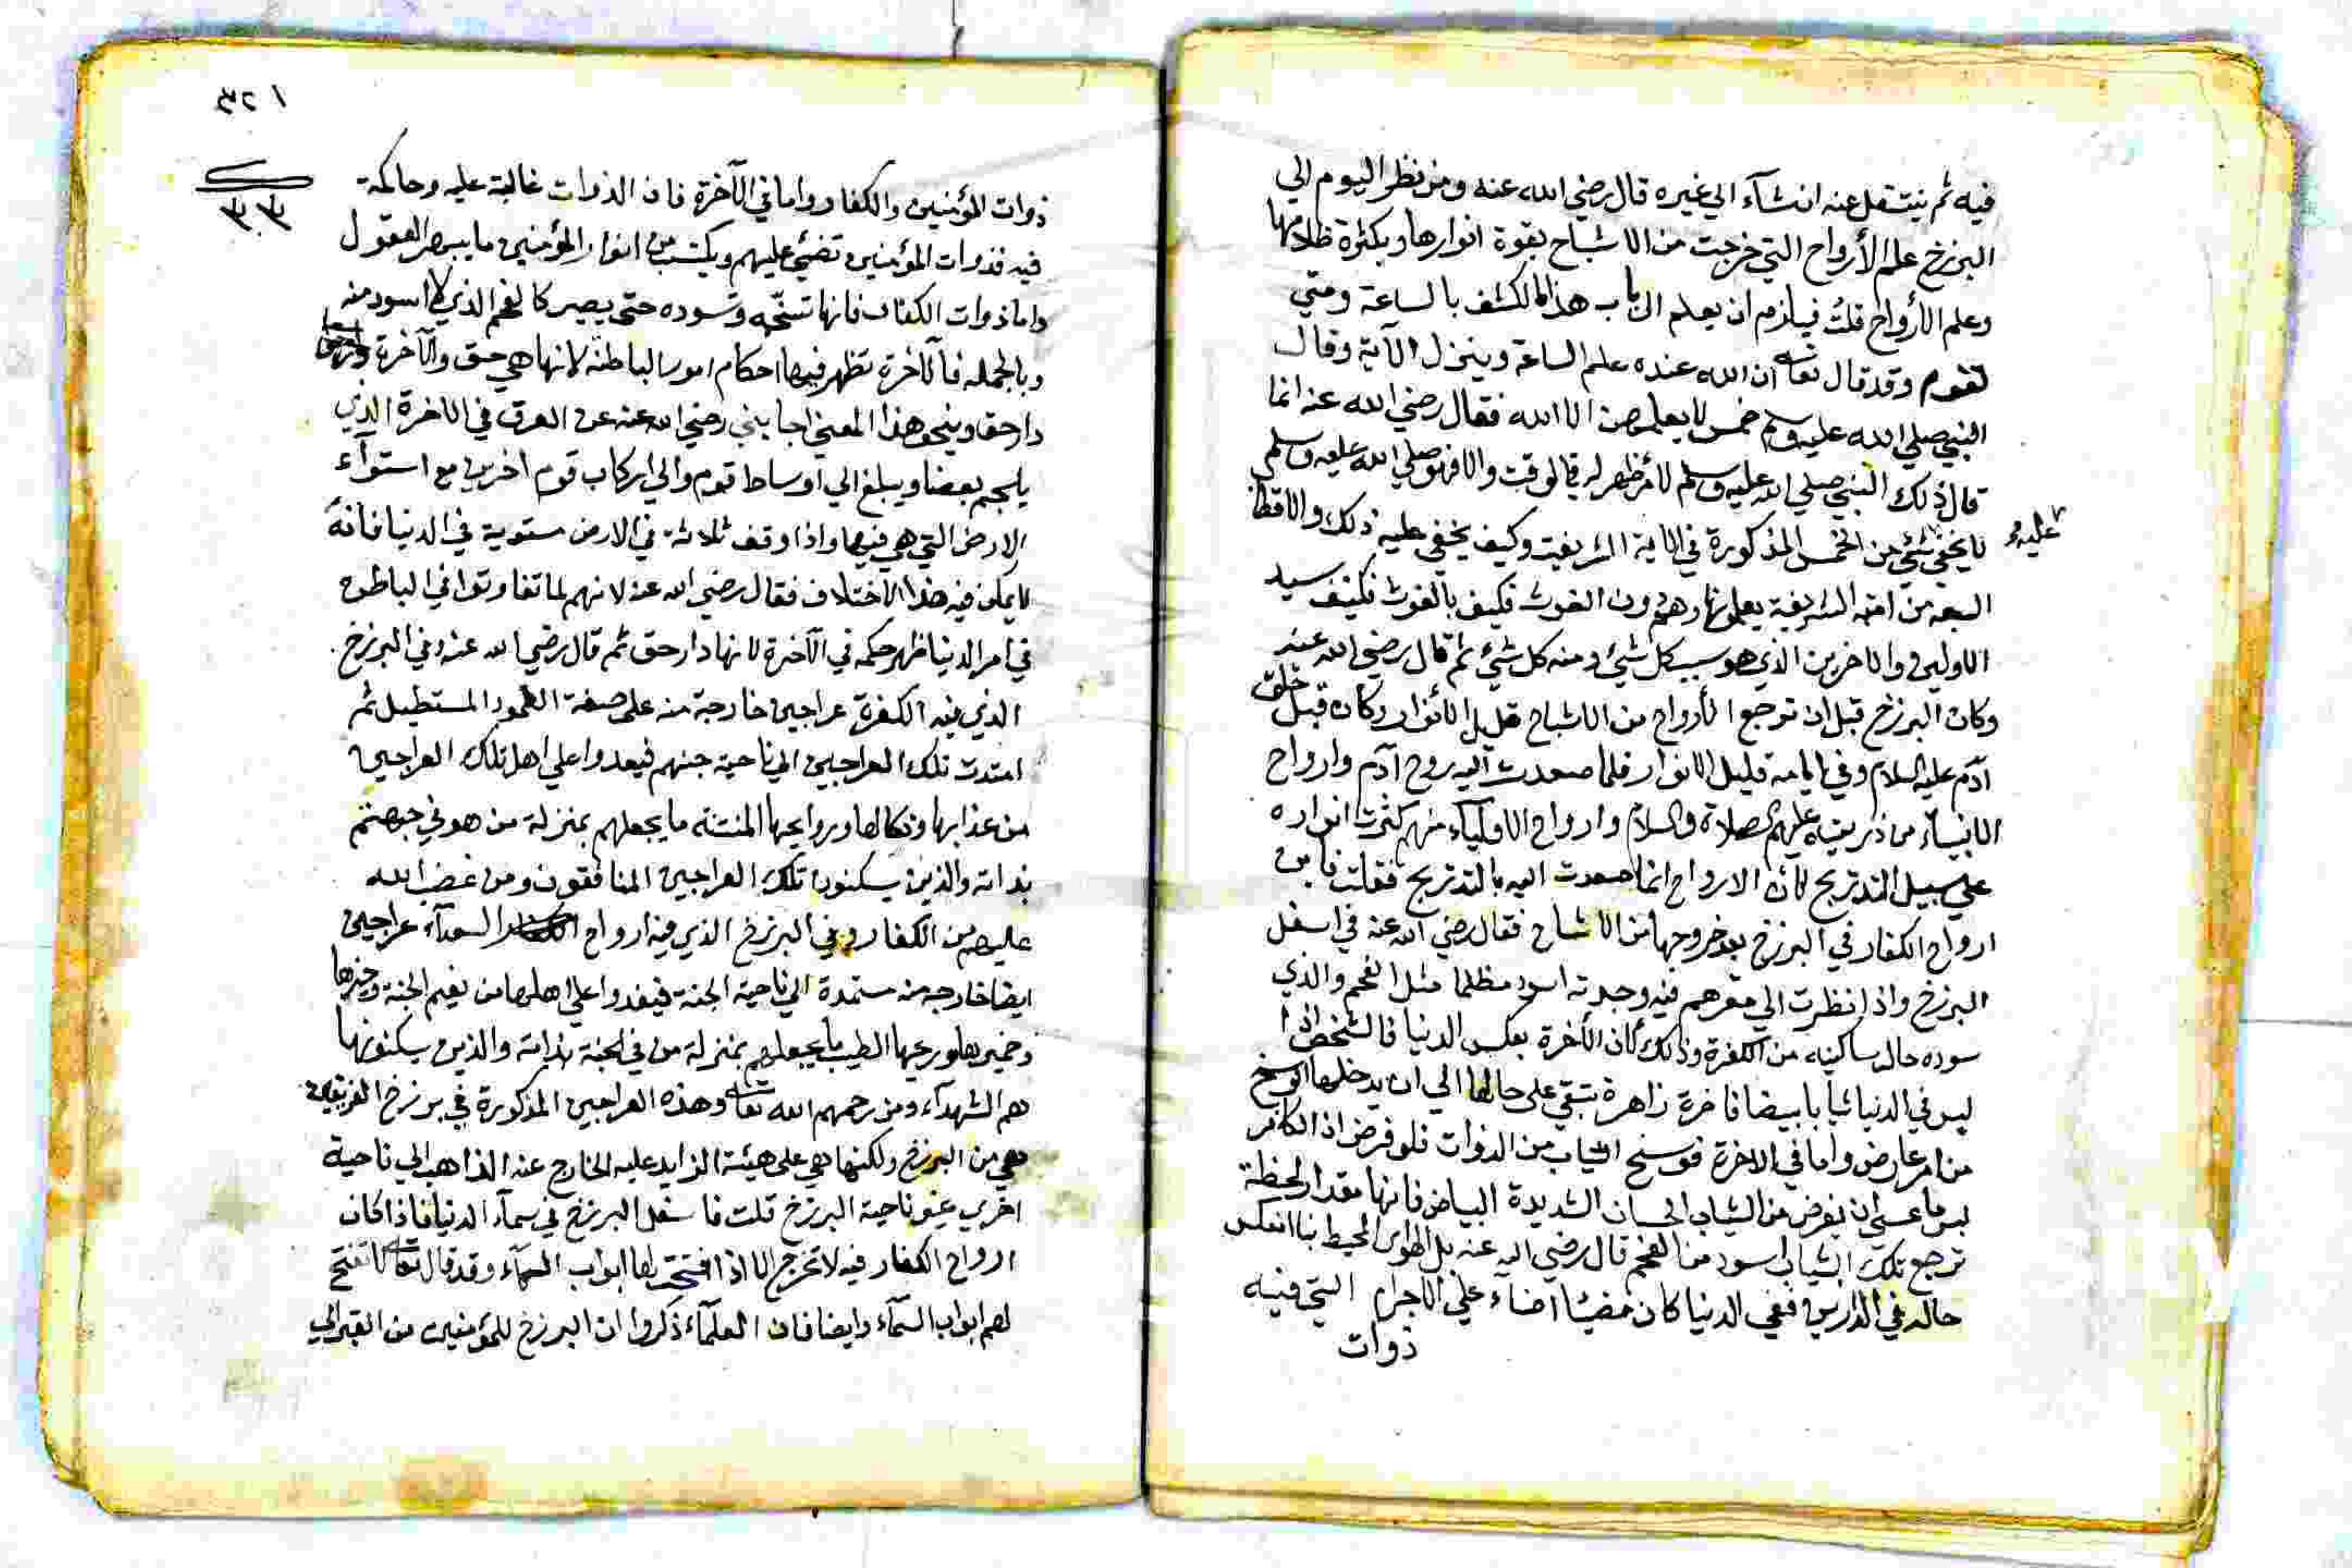 فيه ثم ينتقل عنه انشآء الي غيره قال رضي الله عنه ومن نظر اليوم الي
البرزخ علم الأرواح التي خرجت من الاشباح بقوة انوارها وبكثرة ظلامها
وعلم الأرواح قلت فيلزم ان يعلم ارباب هذا الكشف بالساعة ومتي
تقوم وقد قال تعالى ان الله عنده علم الساعة وينزل الآية وقال
النبي صلي الله عليه وسلم خمس لا يعلمهن الا الله فقال رضي الله عنه انما
قال ذلك النبي صلي الله عليه وسلم لأمر ظهر له في الوقت والا فهو صلي الله عليه وسلم
لا يخفي عليه شئ من الخمس المذكورة في الاية الشريفة وكيف يخفي عليه ذلك والاقطاب
السبعة من امته الشريفة يعلمونها وهم دون الغوث فكيف بالغوث فكيف سيد
الاولين والاخرين الذي هو سبب كل شئ ومنه كل شئ ثم قال رضي الله عنه
وكان البرزخ قبل ان ترجع الأرواح من الاشباح قليل الأنوار وكان قبل خلق
آدم عليه السلام وفي ايامه قليل الانوار فلما صعدت اليه روح آدم وارواح
الانبياء من ذريته عليهم الصلاة والسلام وارواح الاوليآء منهم كثرت انواره
علي سبيل التدريج لأن الارواح انما صعدت اليه بالتدريج فقلت فاين
ارواح الكفار في البرزخ بعد خروجها من الاشباح فقال رضي الله عنه في اسفل
البرزخ واذا نظرت الي مقرهم فيه وجدته اسود مظلما مثل الفحم والذي
سوده حال ساكنيه من الكفرة وذلك لأن الأخرة بعكس الدنيا فالشخص اذا
لبس في الدنيا ثيابا بيضا فاخرة زاهرة تبقي على حالها الي ان يدخلها الوسخ
من امر عارض واما في الاخرة فوسخ الثياب من الذوات فلو فرض ان الكافر
لبس ما عسى ان يفرض من الثياب الحسان الشديدة البياض فانها مقدار لحظة
ترجع تلك الثياب اسود من الفحم قال رضي الله عنه بل الهوى المحيط بنا انعكس
حاله في الدارين ففي الدنيا كان مضيئا اضاء علي الاجرام التي فيه
ذوات
١٢٥
ذوات المؤمنين والكفار واما في الآخرة فان الذوات غالبة عليه وحاكمة
فيه فذوات المؤمنين تضئ عليهم ويكتسب من انوار المؤمنين ما يبهر العقول
واما ذوات الكفار فانها تسخمه وتسوده حتى يصير كالفحم الذي لا اسود منه
وبالجملة فالآخرة تظهر فيها احكام امور الباطنة لانها هي حق والآخرة
دار حق وبنحو هذا المعني اجابني رضي الله عنه عن العرق في الاخرة الذي
يلجم بعضا ويبلغ الي اوساط قوم والي اركاب قوم اخرين مع استوآء
الارض التي هي فيها واذا وقف ثلاثة في الارض مستوية في الدنيا فانه
لا يمكن فيه هذا الاختلاف فقال رضي الله عنه لانهم لما تفاوتوا في الباطن
في امر الدنيا ظهر حكمه في الآخرة لانها دار حق ثم قال رضي الله عنه وفي البرزخ
الذي فيه الكفرة عراجين خارجة منه على صفة العمود المستطيل ثم
امتدت تلك العراجين الي ناحية جهنم فيغدوا علي اهل تلك العراجين
من عذابها ونكالها وروايحها المنتنة ما يجعلهم بمنزلة من هو في جهنم
بذاته والذين يسكنون تلك العراجين المنافقون ومن غضب الله
عليهم من الكفار وفي البرزخ الذي فيه ارواح السعدآء عراجين
ايضا خارجه منه مستمدة الي ناحية الجنة فيغدوا علي اهلها من نعيم الجنة وخيرها
وخيرها وريحها الطيب ما يجعلهم بمنزلة من في الجنة بذاته والذين يسكنونها
هم الشهدآء ومن رحمهم الله تعالى وهذه العراجين المذكورة في برزخ الفريقين
هي من البرزخ ولكنها هي على هيئة الزايد عليه الخارج عنه الذاهب الي ناحية
اخري غير ناحية البرزخ قلت فاسفل البرزخ في سمآء الدنيا فاذا كان
ارواح الكفار فيه لا تخرج الا اذا افتتحت لها ابواب السمآء وقد قال تعالى لا تفتح
لهم ابواب السمآء وايضا فان العلمآء ذكروا ان البرزخ للمؤمنين من القبر الي